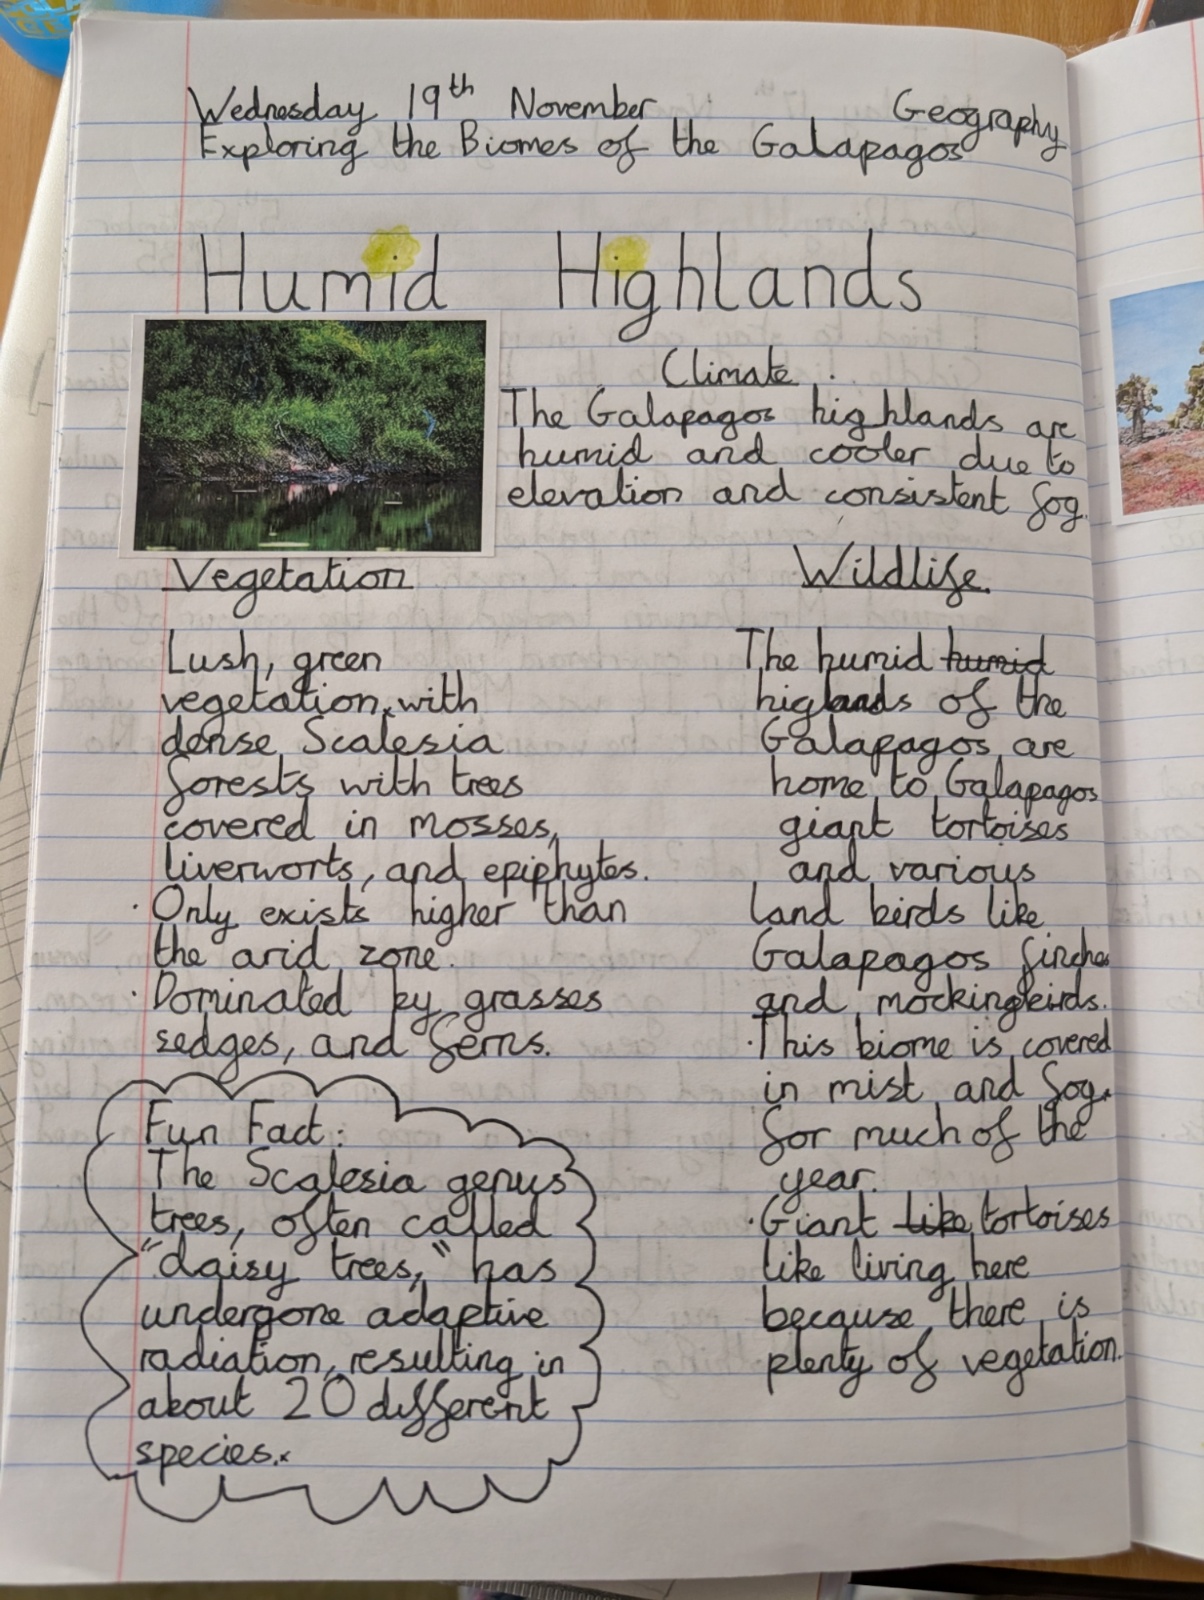 Wednesday 19th November Geography
Exploring the Biomes of the Galapagos
Humid Highlands
Climate
The Galapagos highlands are
humid and cooler due to
elevation and consistent fog.
Vegetation
Lush, green
vegetation with
dense Scalesia
forests with trees
covered in mosses,
liverworts, and epiphytes.
· Only exists higher than
the arid zone.
· Dominated by grasses
sedges, and ferns.
Fun Fact:
The Scalesia genus
trees, often called
"daisy trees," has
undergone adaptive
radiation, resulting in
about 20 different
species.
Wildlife.
The humid humid
higlands of the
Galapagos are
home to Galapagos
giant tortoises
and various
land birds like
Galapagos finches
and mockingbirds.
· This biome is covered
in mist and fog.
for much of the
year.
· Giant like tortoises
like living here
because there is
plenty of vegetation.